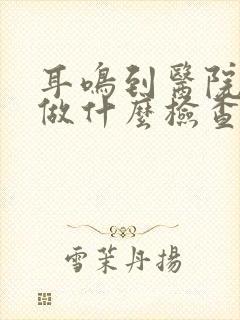 耳鳴到醫院
做什麼檢查
雪茉丹揚